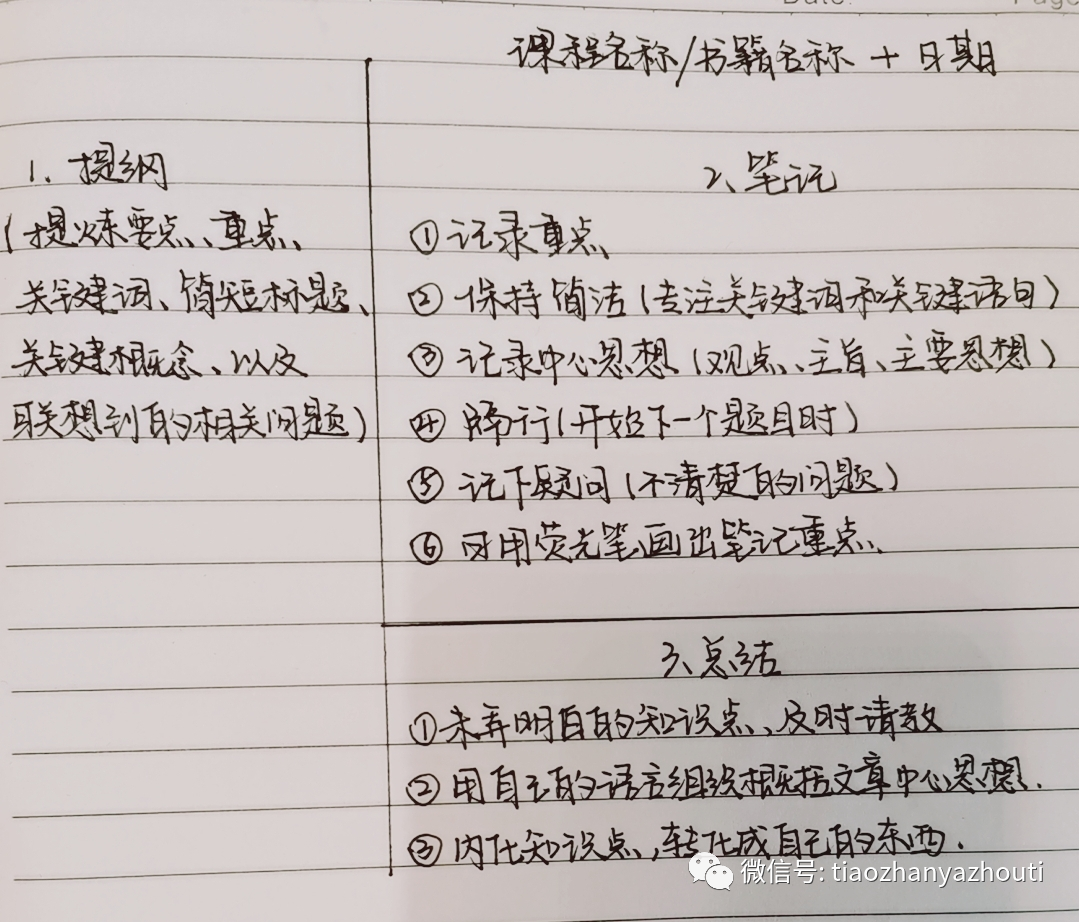 Date.
Page
课程名称/书籍名称 + 日期
1、提纲
(提炼要点、重点、
关键词、简短标题、
关键概念、以及
联想到的相关问题)
2、笔记
①记录重点
②保持简洁(专注关键词和关键语句)
③记录中心思想(观点、主旨、主要思想)
④隔行(开始下一个题目时)
⑤记下疑问(不清楚的问题)
⑥可用荧光笔画出笔记重点、
3、总结
①未弄明白的知识点、及时请教
②用自己的语言组织概括文章中心思想.
③内化知识点,转化成自己的东西.
微信号: tiaozhanyazhouti